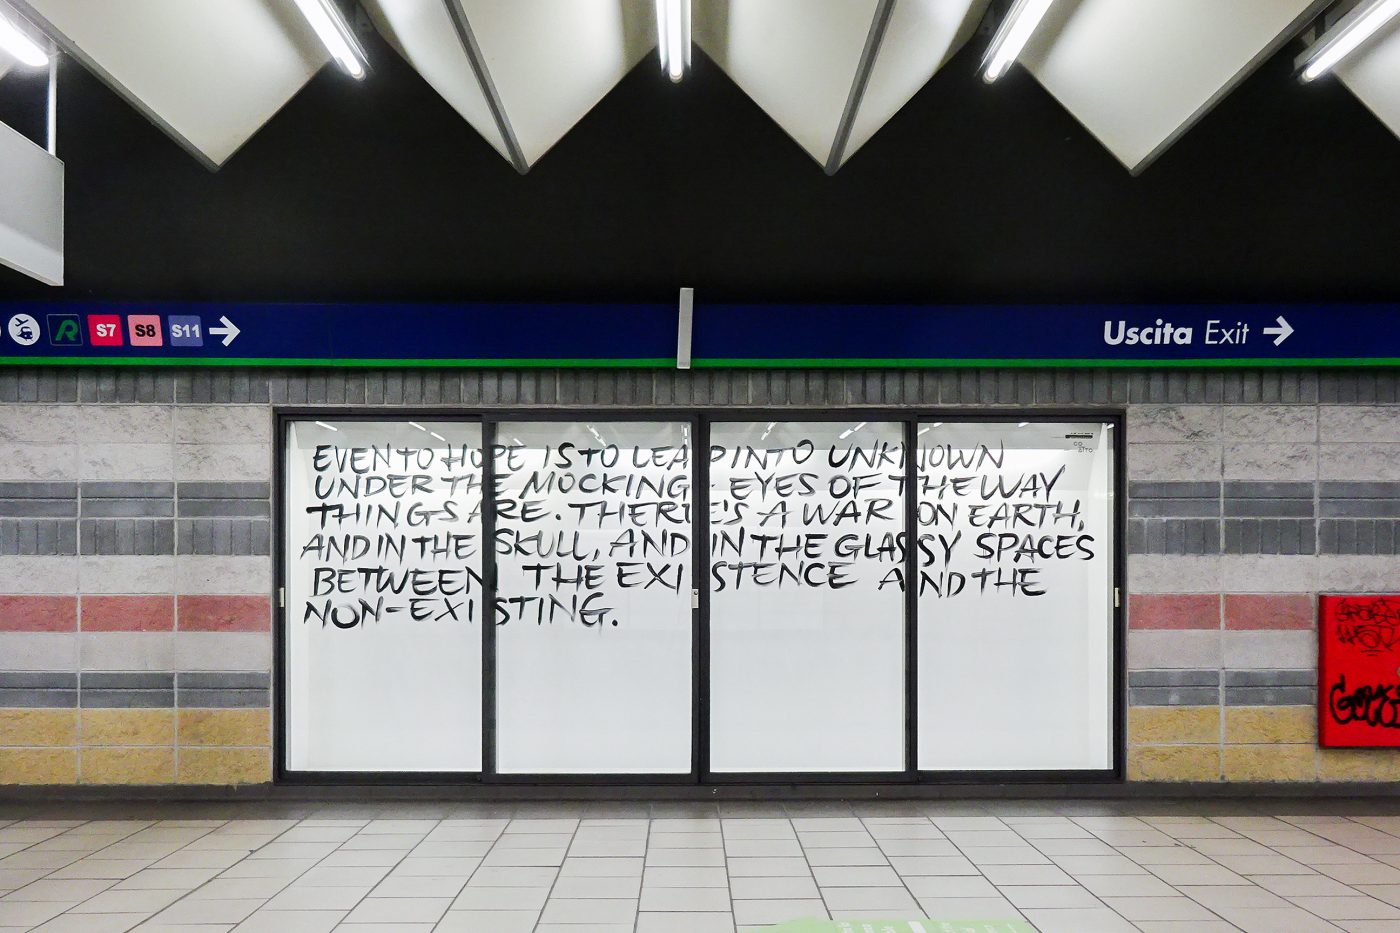 R S7 S8 S11
Uscita Exit
EVEN TO HOPE IS TO LEAP INTO UNKNOWN
UNDER THE MOCKING EYES OF THE WAY
THINGS ARE. THERE'S A WAR ON EARTH,
AND IN THE SKULL, AND IN THE GLASSY SPACES
BETWEEN THE EXISTENCE AND THE
NON-EXISTING.